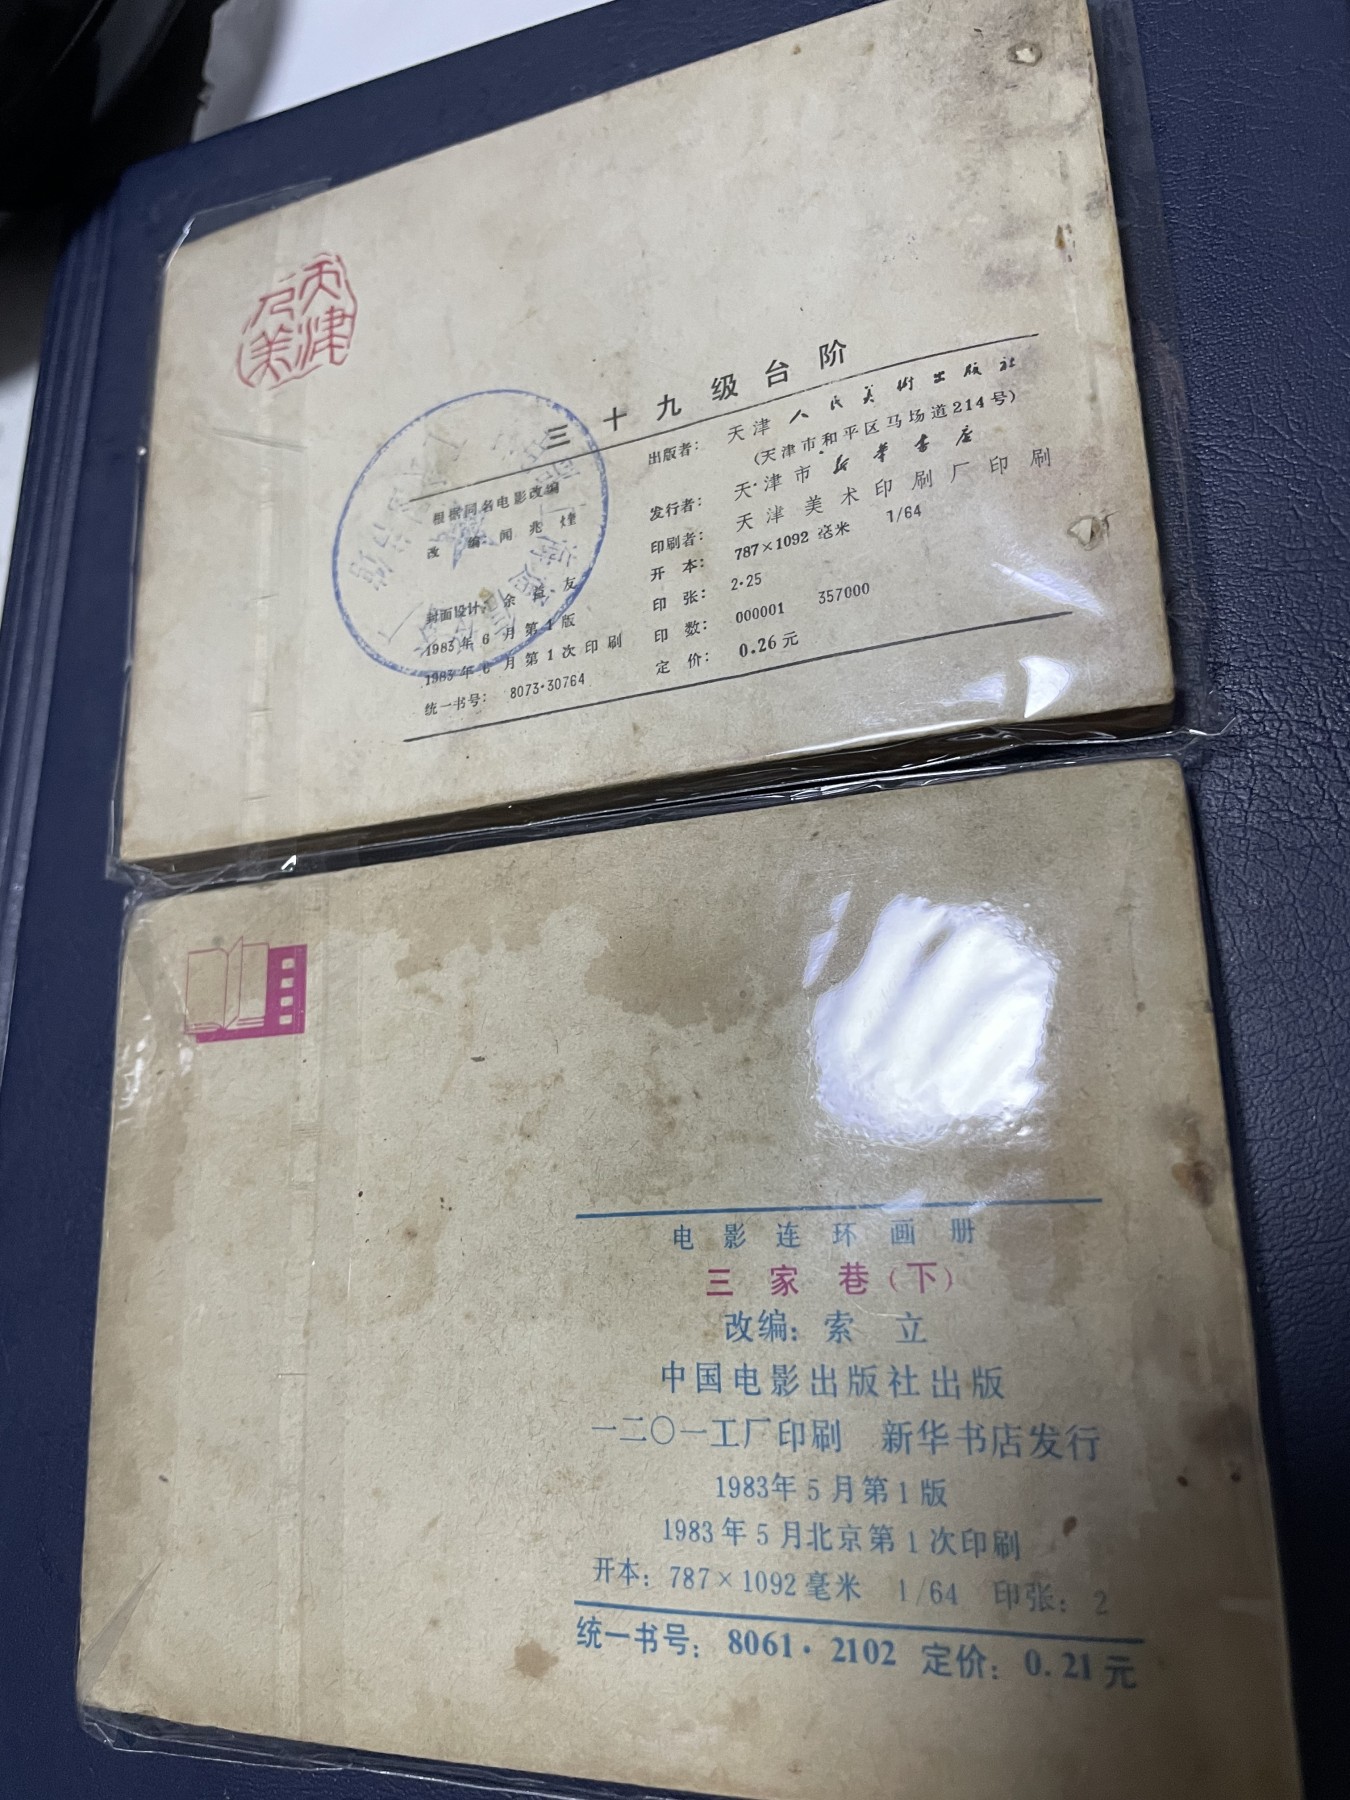 天津
人美
三十九级台阶
根据同名电影改编
改 编: 闻兆煃
封面设计: 余 友
1983年6月第1版
1983年6月第1次印刷
统一书号: 8073·30764
出版者: 天津人民美术出版社
(天津市和平区马场道214号)
发行者: 天津市新华书店
印刷者: 天津美术印刷厂印刷
开 本: 787×1092毫米 1/64
印 张: 2·25
印 数: 000001 357000
定 价: 0.26元
电影连环画册
三家巷(下)
改编: 索 立
中国电影出版社出版
一二〇一工厂印刷 新华书店发行
1983年5月第1版
1983年5月北京第1次印刷
开本: 787×1092毫米 1/64 印张: 2
统一书号: 8061·2102 定价: 0.21元